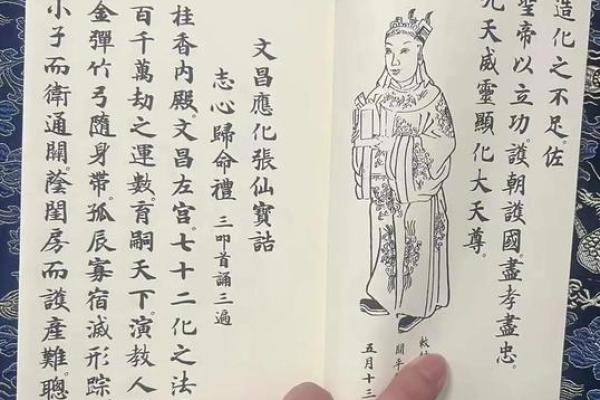 造化之不足。佐
聖帝以立功。護朝護國。盡孝盡忠。
九天威靈顯化大天尊。
關平
五月十三
文昌應化張仙寶誥
志心歸命禮 三叩首誦三遍
桂香內殿。文昌左宮。七十二化之法
百千萬劫之運數。育嗣天下。演教人
金彈竹弓隨身帶。孤辰寡宿滅形踪
小子而衛通關。蔭閨房而護產難。聰